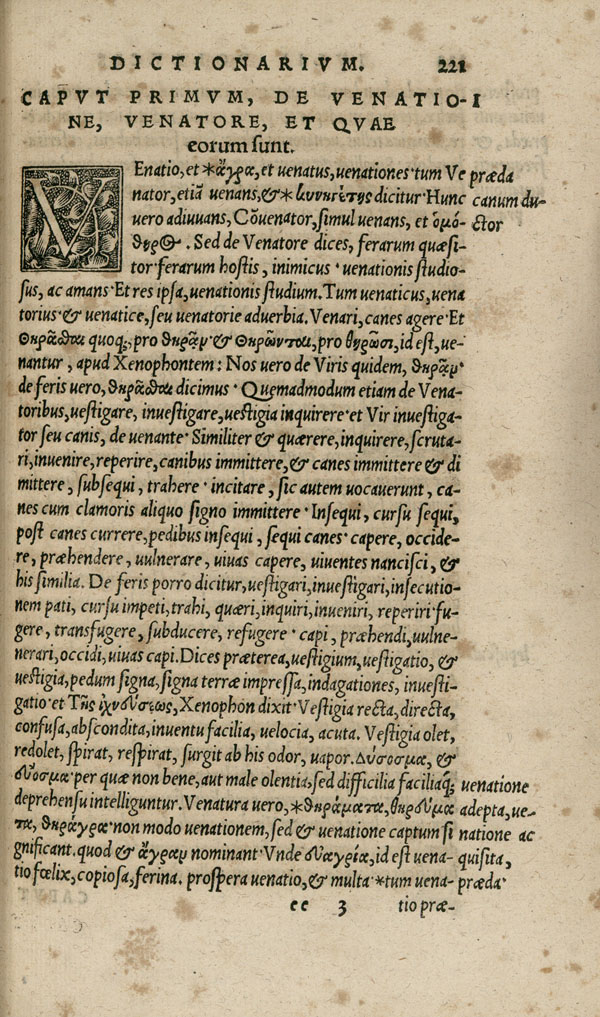 DICTIONARIVM. 221
CAPVT PRIMVM, DE VENATIO-I
NE, VENATORE, ET QVAE
eorum sunt.
VEnatio, et *ἄγρα, et uenatus, uenationes· tum Ve præda
nator, etiã uenans, &* κυνηγέτης dicitur· Hunc canum du-
uero adiuuans, Cõuenator, simul uenans, et ὁμό- ctor
θηρος. Sed de Venatore dices, ferarum quæsi-
tor· ferarum hostis, inimicus· uenationis studio-
sus, ac amans· Et res ipsa, uenationis studium. Tum uenaticus, uena
torius· & uenatice, seu uenatorie aduerbia. Venari, canes agere· Et
Θηρᾶσθαι quoq;, pro θηρᾷν· & Θηρῶνται, pro θηρῶσι, id est, ue-
nantur, apud Xenophontem: Nos uero de Viris quidem, θηρᾷν·
de feris uero, θηρᾶσθαι dicimus· Quemadmodum etiam de Vena-
toribus, uestigare, inuestigare, uestigia inquirere· et Vir inuestiga-
tor seu canis, de uenante· Similiter & quærere, inquirere, scruta-
ri, inuenire, reperire, canibus immittere, & canes immittere & di
mittere, subsequi, trahere· incitare, sic autem uocauerunt, ca-
nes cum clamoris aliquo signo immittere· Insequi, cursu sequi,
post canes currere, pedibus insequi, sequi canes· capere, occide-
re, præhendere, uulnerare, uiuas capere, uiuentes nancisci, &
his similia. De feris porro dicitur, uestigari, inuestigari, insecutio-
nem pati, cursu impeti, trahi, quæri, inquiri, inueniri, reperiri· fu-
gere, transfugere, subducere, refugere· capi, præhendi, uulne-
nerari, occidi, uiuas capi. Dices præterea, uestigium, uestigatio, &
uestigia, pedum signa, signa terræ impressa, indagationes, inuesti-
gatio· et Τῆς ἰχνεύσεως, Xenophon dixit· Vestigia recta, directa,
confusa, abscondita, inuentu facilia, uelocia, acuta. Vestigia olet,
redolet, spirat, respirat, surgit ab his odor, uapor. Δύσοσμα, &
εὔοσμα· per quæ non bene, aut male olentia, sed difficilia faciliaq́; uenatione
deprehensu intelliguntur. Venatura uero, *θηράματα, θηρεύμα adepta, ue-
τα, θηράγρα· non modo uenationem, sed & uenatione captum si natione ac
gnificant. quod & ἄγραν nominant· Vnde εὐαγρία, id est uena- quisita,
tio fœlix, copiosa, ferina. prospera uenatio, & multa· *tum uena- præda·
ee 3 tio præ-